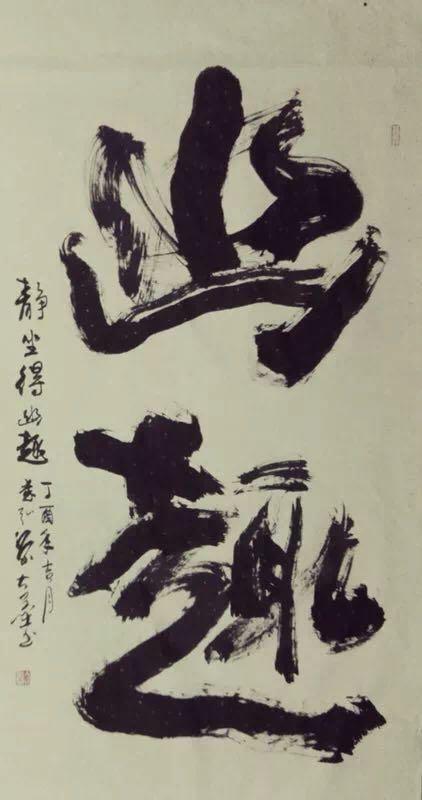 幽趣
静坐得幽趣
丁酉年吉月